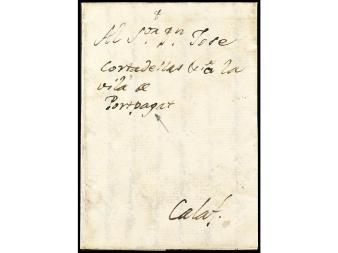 Al Sr. Dn. Jose
Cortadellas de la
vila de
Port pagat
Calaf.